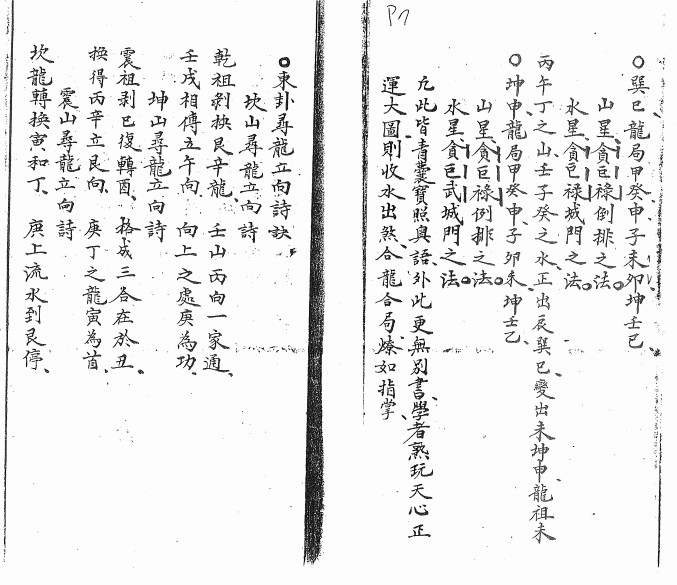 P7
○巽巳龍局甲癸申、子未卯、坤壬乙、
山星貪巨祿倒排之法。
水星貪巨祿城門之法。
丙午丁之山壬子癸之水、正出辰巽巳、變出未坤申、龍祖未
○坤申龍局甲癸申、子卯未、坤壬乙、
山星貪巨祿倒排之法。
水星貪巨武城門之法。
凡此皆青囊寶照奧語、外此更無別書、學者熟玩天心正
運大圖、則收水出煞、合龍合局、燎如指掌、
○東卦尋龍立向詩訣、
坎山尋龍立向詩
乾祖剝換艮辛龍、 壬山丙向一家通、
壬戌相傳立午向、 向上之處庚為功、
坤山尋龍立向詩
震祖剥巳復轉酉、 格成三合在於丑、
換得丙辛立艮向、 庚丁之龍寅為首、
震山尋龍立向詩
坎龍轉換寅和丁、 庚上流水到艮停、